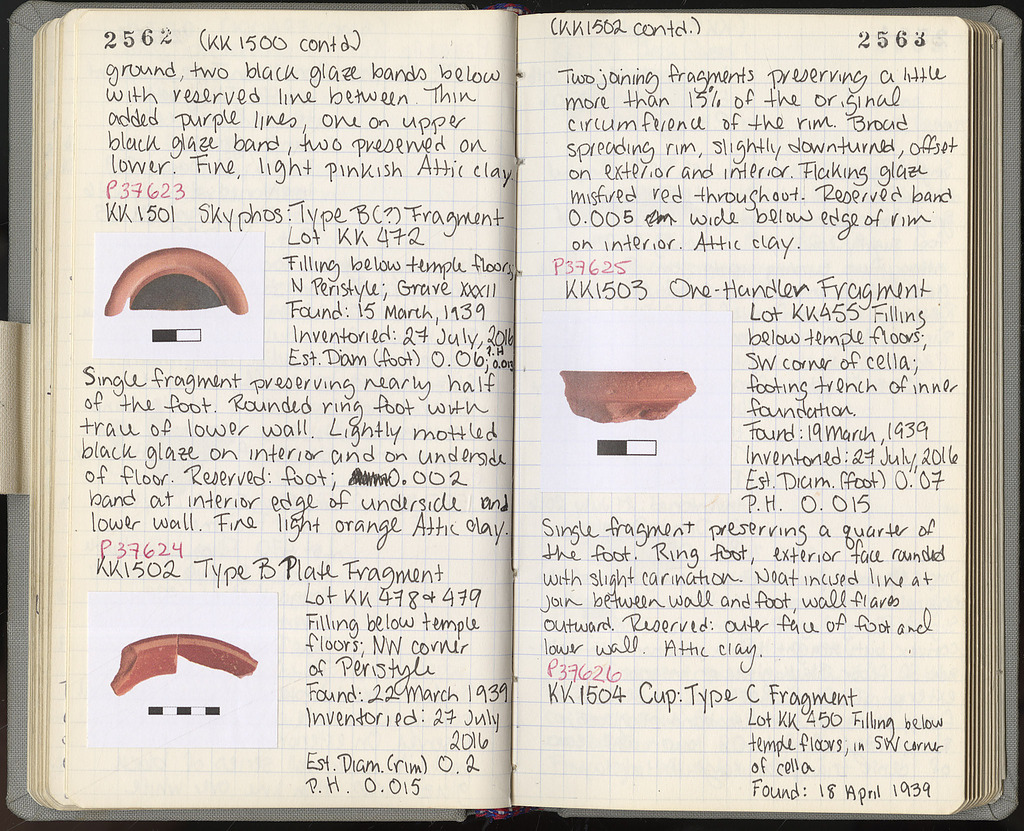 2562 (KK 1500 contd)
ground, two black glaze bands below
with reserved line between. Thin
added purple lines, one on upper
black glaze band, two preserved on
lower. Fine, light pinkish Attic clay.
P37623
KK1501 Skyphos: Type B(?) Fragment
Lot KK 472
Filling below temple floors,
N Peristyle; Grave XXXII
Found: 15 March, 1939
Inventoried: 27 July, 2016
Est. Diam (foot) 0.06; P.H. 0.013
Single fragment preserving nearly half
of the foot. Rounded ring foot with
trace of lower wall. Lightly mottled
black glaze on interior and on underside
of floor. Reserved: foot, 0.002
band at interior edge of underside and
lower wall. Fine light orange Attic clay.
P37624
KK1502 Type B Plate Fragment
Lot KK 478 & 479
Filling below temple
floors, NW corner
of Peristyle
Found: 22 March 1939
Inventoried: 27 July
2016
Est. Diam. (rim) 0.2
P.H. 0.015
(KK1502 contd.)
2563
Two joining fragments preserving a little
more than 15% of the original
circumference of the rim. Broad
spreading rim, slightly downturned, offset
on exterior and interior. Flaking glaze
misfired red throughout. Reserved band
0.005 wide below edge of rim
on interior. Attic clay.
P37625
KK1503 One-Handler Fragment
Lot KK455 Filling
below temple floors;
SW corner of cella;
footing trench of inner
foundation.
Found: 19 March, 1939
Inventoried: 27 July, 2016
Est. Diam. (foot) 0.07
P.H. 0.015
Single fragment preserving a quarter of
the foot. Ring foot, exterior face rounded
with slight carination. Neat incised line at
join between wall and foot, wall flares
outward. Reserved: outer face of foot and
lower wall. Attic clay.
P37626
KK1504 Cup: Type C Fragment
Lot KK 450 Filling below
temple floors, in SW corner
of cella
Found: 18 April 1939